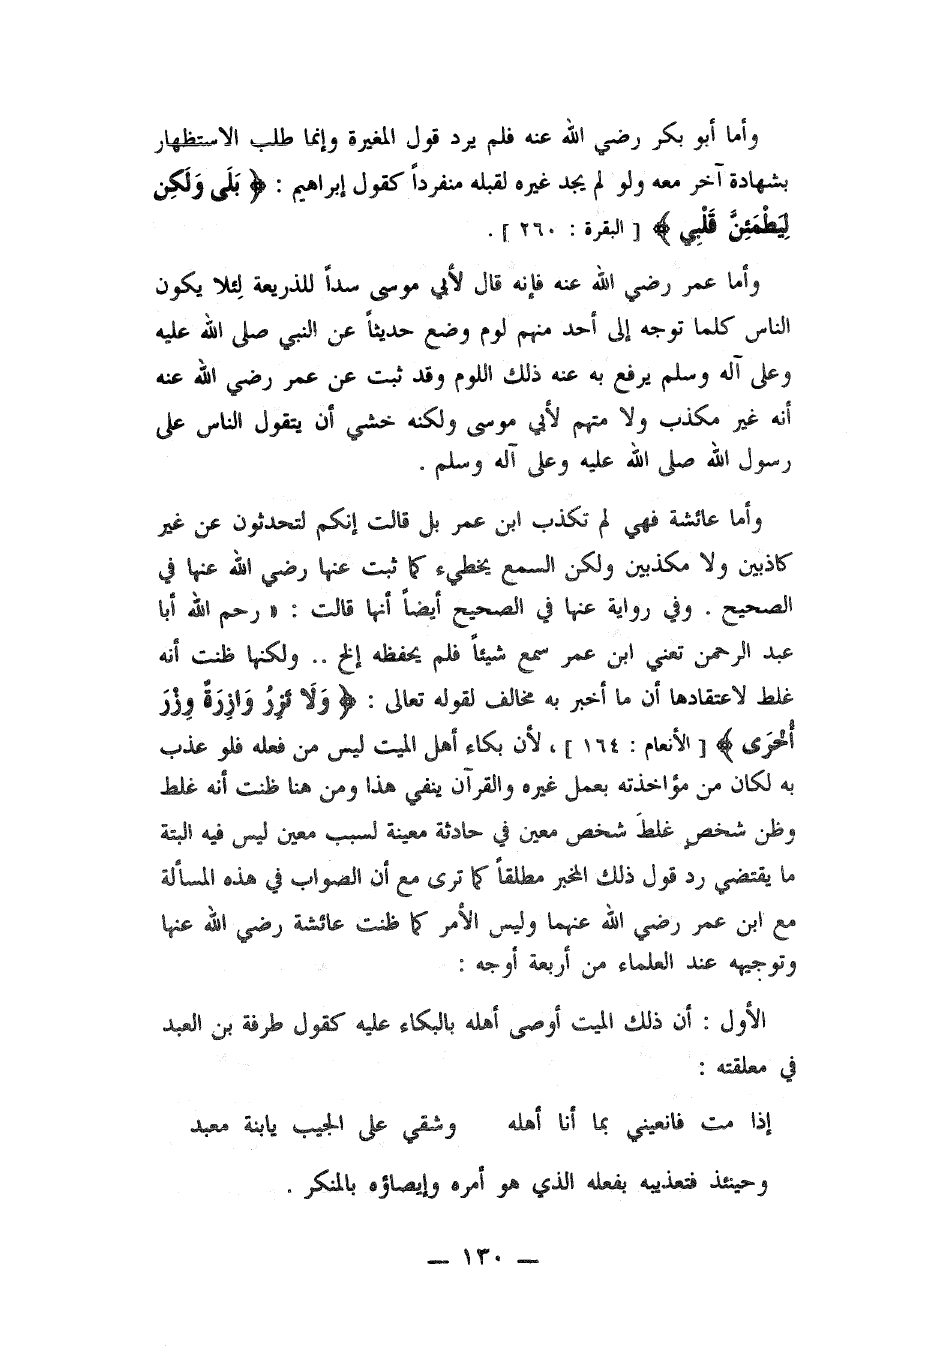 وأما أبو بكر رضي الله عنه فلم يرد قول المغيرة وإنما طلب الاستظهار
بشهادة آخر معه ولو لم يجد غيره لقبله منفرداً كقول إبراهيم : ﴿ بَلَى وَلَكِن
لِيَطْمَئِنَّ قَلْبِي ﴾ [ البقرة : ٢٦٠ ] .
وأما عمر رضي الله عنه فإنه قال لأبي موسى سداً للذريعة لِئلا يكون
الناس كلما توجه إلى أحد منهم لوم وضع حديثاً عن النبي صلى الله عليه
وعلى آله وسلم يرفع به عنه ذلك اللوم وقد ثبت عن عمر رضي الله عنه
أنه غير مكذب ولا متهم لأبي موسى ولكنه خشي أن يتقول الناس على
رسول الله صلى الله عليه وعلى آله وسلم .
وأما عائشة فهي لم تكذب ابن عمر بل قالت إنكم لتحدثون عن غير
كاذبين ولا مكذبين ولكن السمع يخطيء كما ثبت عنها رضي الله عنها في
الصحيح . وفي رواية عنها في الصحيح أيضاً أنها قالت : « رحم الله أبا
عبد الرحمن تعني ابن عمر سمع شيئاً فلم يحفظه إلخ .. ولكنها ظنت أنه
غلط لاعتقادها أن ما أخبر به مخالف لقوله تعالى : ﴿ وَلَا تَزِرُ وَازِرَةٌ وِزْرَ
أُخْرَى ﴾ [ الأنعام : ١٦٤ ] ، لأن بكاء أهل الميت ليس من فعله فلو عذب
به لكان من مؤاخذته بعمل غيره والقرآن ينفي هذا ومن هنا ظنت أنه غلط
وظن شخصٍ غلطَ شخص معين في حادثة معينة لسبب معين ليس فيه البتة
ما يقتضي رد قول ذلك المخبر مطلقاً كما ترى مع أن الصواب في هذه المسألة
مع ابن عمر رضي الله عنهما وليس الأمر كما ظنت عائشة رضي الله عنها
وتوجيهه عند العلماء من أربعة أوجه :
الأول : أن ذلك الميت أوصى أهله بالبكاء عليه كقول طرفة بن العبد
في معلقته :
إذا مت فانعيني بما أنا أهله وشقي على الجيب يابنة معبد
وحينئذ فتعذيبه بفعله الذي هو أمره وإيصاؤه بالمنكر .
— ١٣٠ —